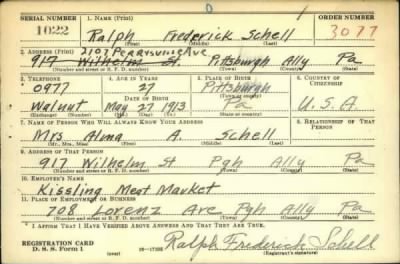 SERIAL NUMBER 1. NAME (Print) ORDER NUMBER
1022 Ralph Frederick Schell 3077
(First) (Middle) (Last)
2. ADDRESS (Print) 2107 Perrysville Ave
917 Wilhelm St. Pittsburgh Ally Pa
(Number and street or R. F. D. number) (Town) (County) (State)
3. TELEPHONE 4. AGE IN YEARS 5. PLACE OF BIRTH 6. COUNTRY OF CITIZENSHIP
0977 27 Pittsburgh
DATE OF BIRTH (Town or county)
Walnut May 27 1913 Pa U.S.A
(Exchange) (Number) (Mo.) (Day) (Yr.) (State or country)
7. NAME OF PERSON WHO WILL ALWAYS KNOW YOUR ADDRESS 8. RELATIONSHIP OF THAT PERSON
Mrs Alma A. Schell
(Mr., Mrs., Miss) (First) (Middle) (Last)
9. ADDRESS OF THAT PERSON
917 Wilhelm St Pgh Ally Pa
(Number and street or R. F. D. number) (Town) (County) (State)
10. EMPLOYER'S NAME
Kissling Meat Market
11. PLACE OF EMPLOYMENT OR BUSINESS
708 Lorenz Ave Pgh Ally Pa
(Number and street or R. F. D. number) (Town) (County) (State)
I AFFIRM THAT I HAVE VERIFIED ABOVE ANSWERS AND THAT THEY ARE TRUE.
REGISTRATION CARD
D. S. S. Form 1 (over) Ralph Frederick Schell
(Registrant's signature)